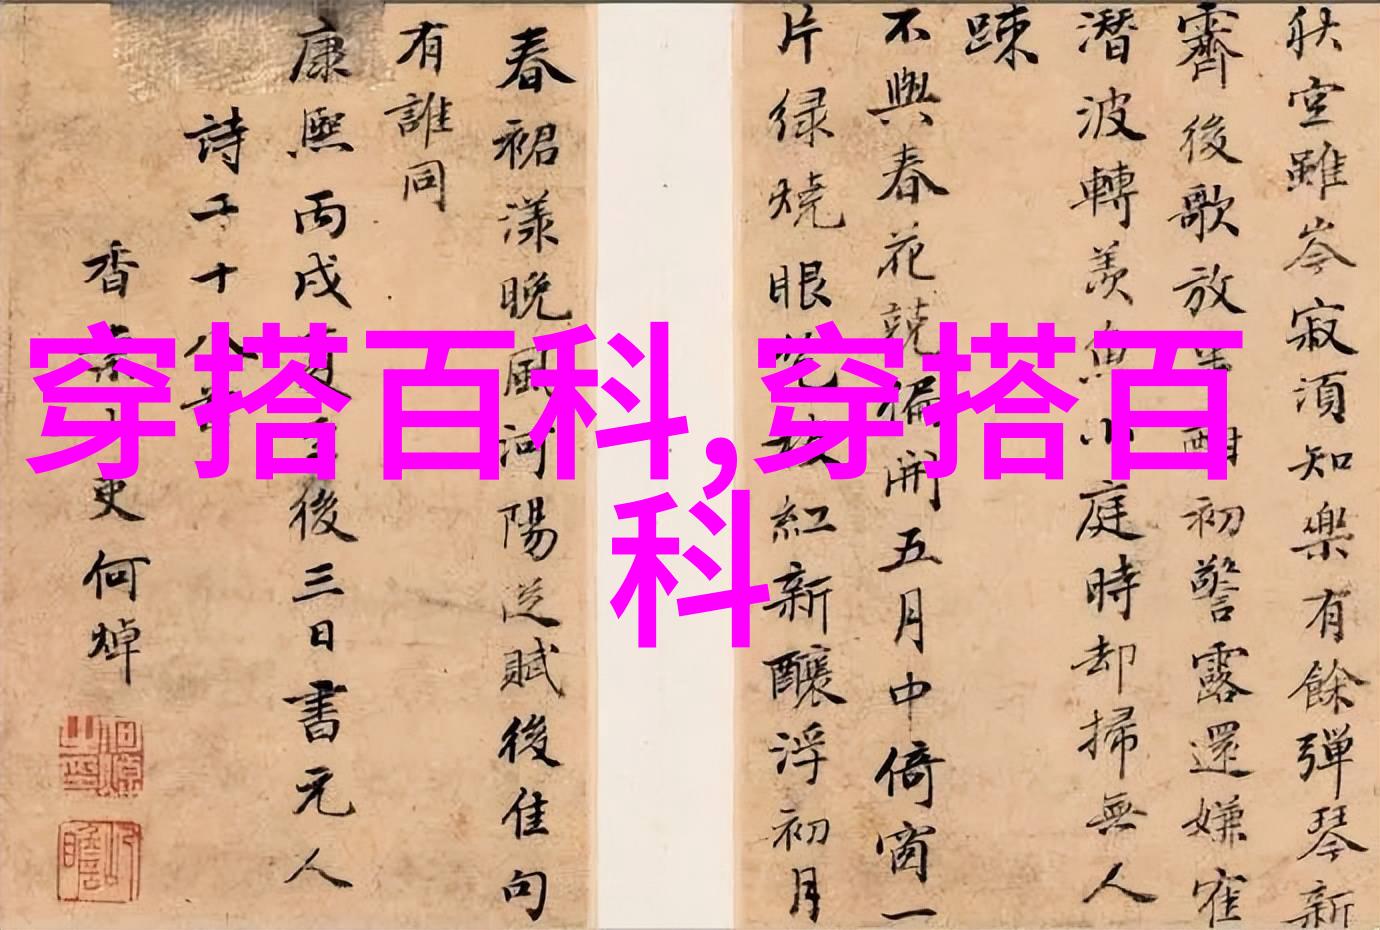 秋空雖岑寂須知樂有餘彈琴新
霽後歌放
初警露還嫌
潛波轉羨魚小庭時却掃無人
踈
不與春花競偏開五月中倚窗一
片緑燒眼
紅新釀浮初月
春裙漾晚風河陽
賦後佳句
有誰同
康熙丙戌
後三日書元人
詩二十八首
香案小吏何焯
穿搭百科,穿搭百
科